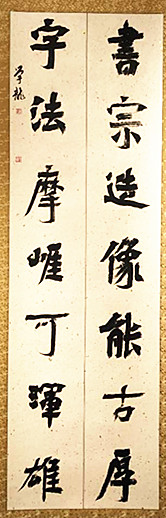 書宗造像能古厚
字法摩崕可渾雄